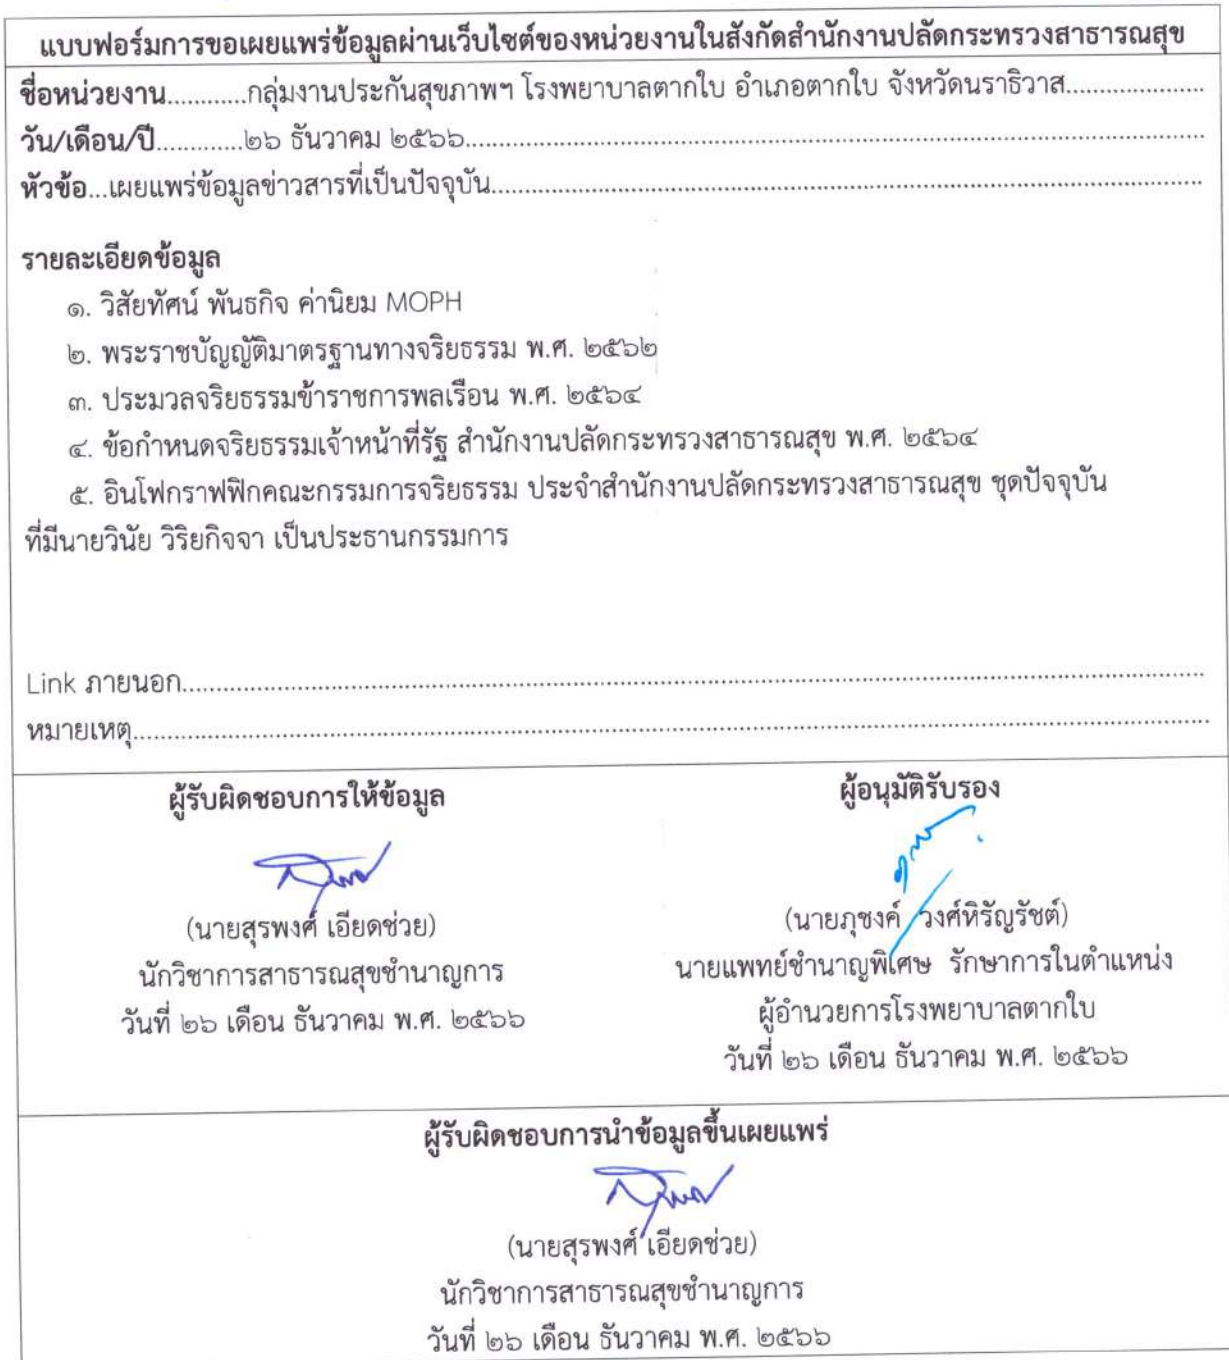 แบบฟอร์มการขอเผยแพร่ข้อมูลผ่านเว็บไซต์ของหน่วยงานในสังกัดสำนักงานปลัดกระทรวงสาธารณสุข
ชื่อหน่วยงาน............กลุ่มงานประกันสุขภาพฯ โรงพยาบาลตากใบ อำเภอตากใบ จังหวัดนราธิวาส.....................
วัน/เดือน/ปี.............๒๖ ธันวาคม ๒๕๖๖.....................
หัวข้อ...เผยแพร่ข้อมูลข่าวสารที่เป็นปัจจุบัน.....................
รายละเอียดข้อมูล
๑. วิสัยทัศน์ พันธกิจ ค่านิยม MOPH
๒. พระราชบัญญัติมาตรฐานทางจริยธรรม พ.ศ. ๒๕๖๒
๓. ประมวลจริยธรรมข้าราชการพลเรือน พ.ศ. ๒๕๖๔
๔. ข้อกำหนดจริยธรรมเจ้าหน้าที่รัฐ สำนักงานปลัดกระทรวงสาธารณสุข พ.ศ. ๒๕๖๔
๕. อินโฟกราฟฟิกคณะกรรมการจริยธรรม ประจำสำนักงานปลัดกระทรวงสาธารณสุข ชุดปัจจุบัน
ที่มีนายวินัย วิริยกิจจา เป็นประธานกรรมการ
Link ภายนอก.....................
หมายเหตุ.....................
ผู้รับผิดชอบการให้ข้อมูล
(นายสุรพงศ์ เอียดช่วย)
นักวิชาการสาธารณสุขชำนาญการ
วันที่ ๒๖ เดือน ธันวาคม พ.ศ. ๒๕๖๖
ผู้อนุมัติรับรอง
(นายภุชงค์ วงศ์หิรัญรัชต์)
นายแพทย์ชำนาญพิเศษ รักษาการในตำแหน่ง
ผู้อำนวยการโรงพยาบาลตากใบ
วันที่ ๒๖ เดือน ธันวาคม พ.ศ. ๒๕๖๖
ผู้รับผิดชอบการนำข้อมูลขึ้นเผยแพร่
(นายสุรพงศ์ เอียดช่วย)
นักวิชาการสาธารณสุขชำนาญการ
วันที่ ๒๖ เดือน ธันวาคม พ.ศ. ๒๕๖๖